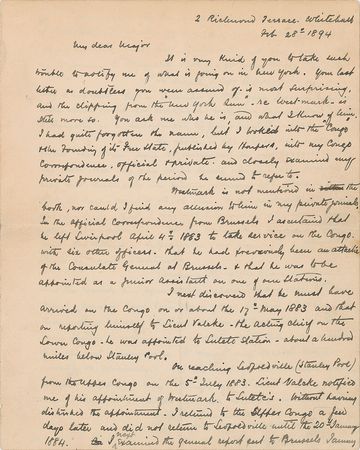 2 Richmond Terrace. Whitehall
Feb. 28th 1894
My dear Major
It is very kind of you to take such
trouble to notify me of what is going on in New York. Your last
letter as doubtless you were assured of is most surprising,
and the clipping from the "New York Sun" - re Westmark - is
still more so. You ask me who he is, and what I know of him.
I had quite forgotten the name, but I looked into the Congo
& the Founding of its Free State, published by Harpers, into my Congo
Correspondence, official & private, and closely examined my
private journals of the period he seemed to refer to.
Westmark is not mentioned in the
book, nor could I find any allusion to him in my private journals.
In the official Correspondence from Brussels I ascertained that
he left Liverpool April 4th 1883 to take service on the Congo
with six other officers. that he had previously been an attache
of the Consulate General at Brussels - & that he was to be
appointed as a Junior Assistant on one of our Stations.
I next discovered that he must have
arrived on the Congo on or about the 17th May 1883 and that
on reporting himself to Lieut Valcke - the acting chief on the
Lower Congo - he was appointed to Lutete Station - about a hundred
miles below Stanley Pool.
On reaching Leopoldville (Stanley Pool)
from the Upper Congo on the 5th July 1883. Lieut Valcke notified
me of his appointment of Westmark to Lutete's. Without having
disturbed the appointment. I returned to the Upper Congo a few
days later and did not return to Leopoldville until the 20th January
1884. I next examined the general report sent to Brussels January